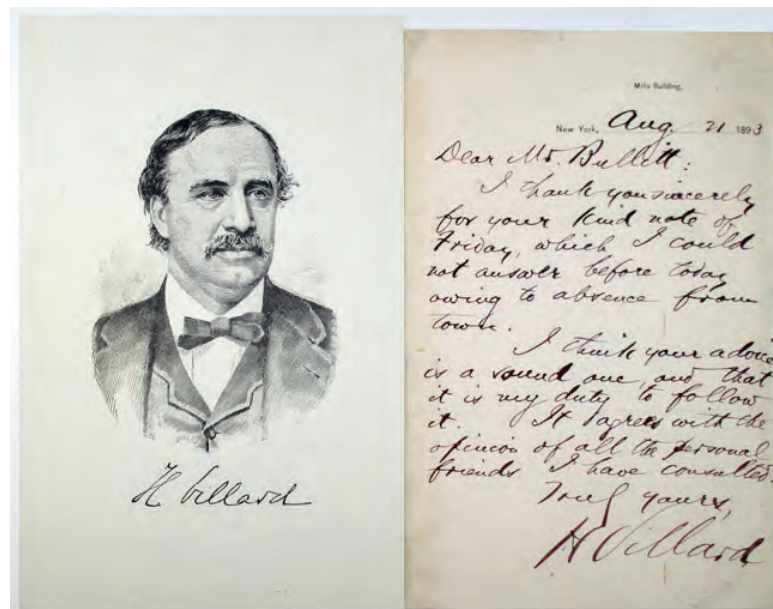 H. Villard
Mills Building,
New York, Aug. 21 1893
Dear Mr. Bullitt:
I thank you sincerely
for your kind note of
Friday, which I could
not answer before today
owing to absence from
town.
I think your advice
is a sound one, and that
it is my duty to follow
it. It agrees with the
opinion of all the personal
friends I have consulted.
Truly yours,
H Villard